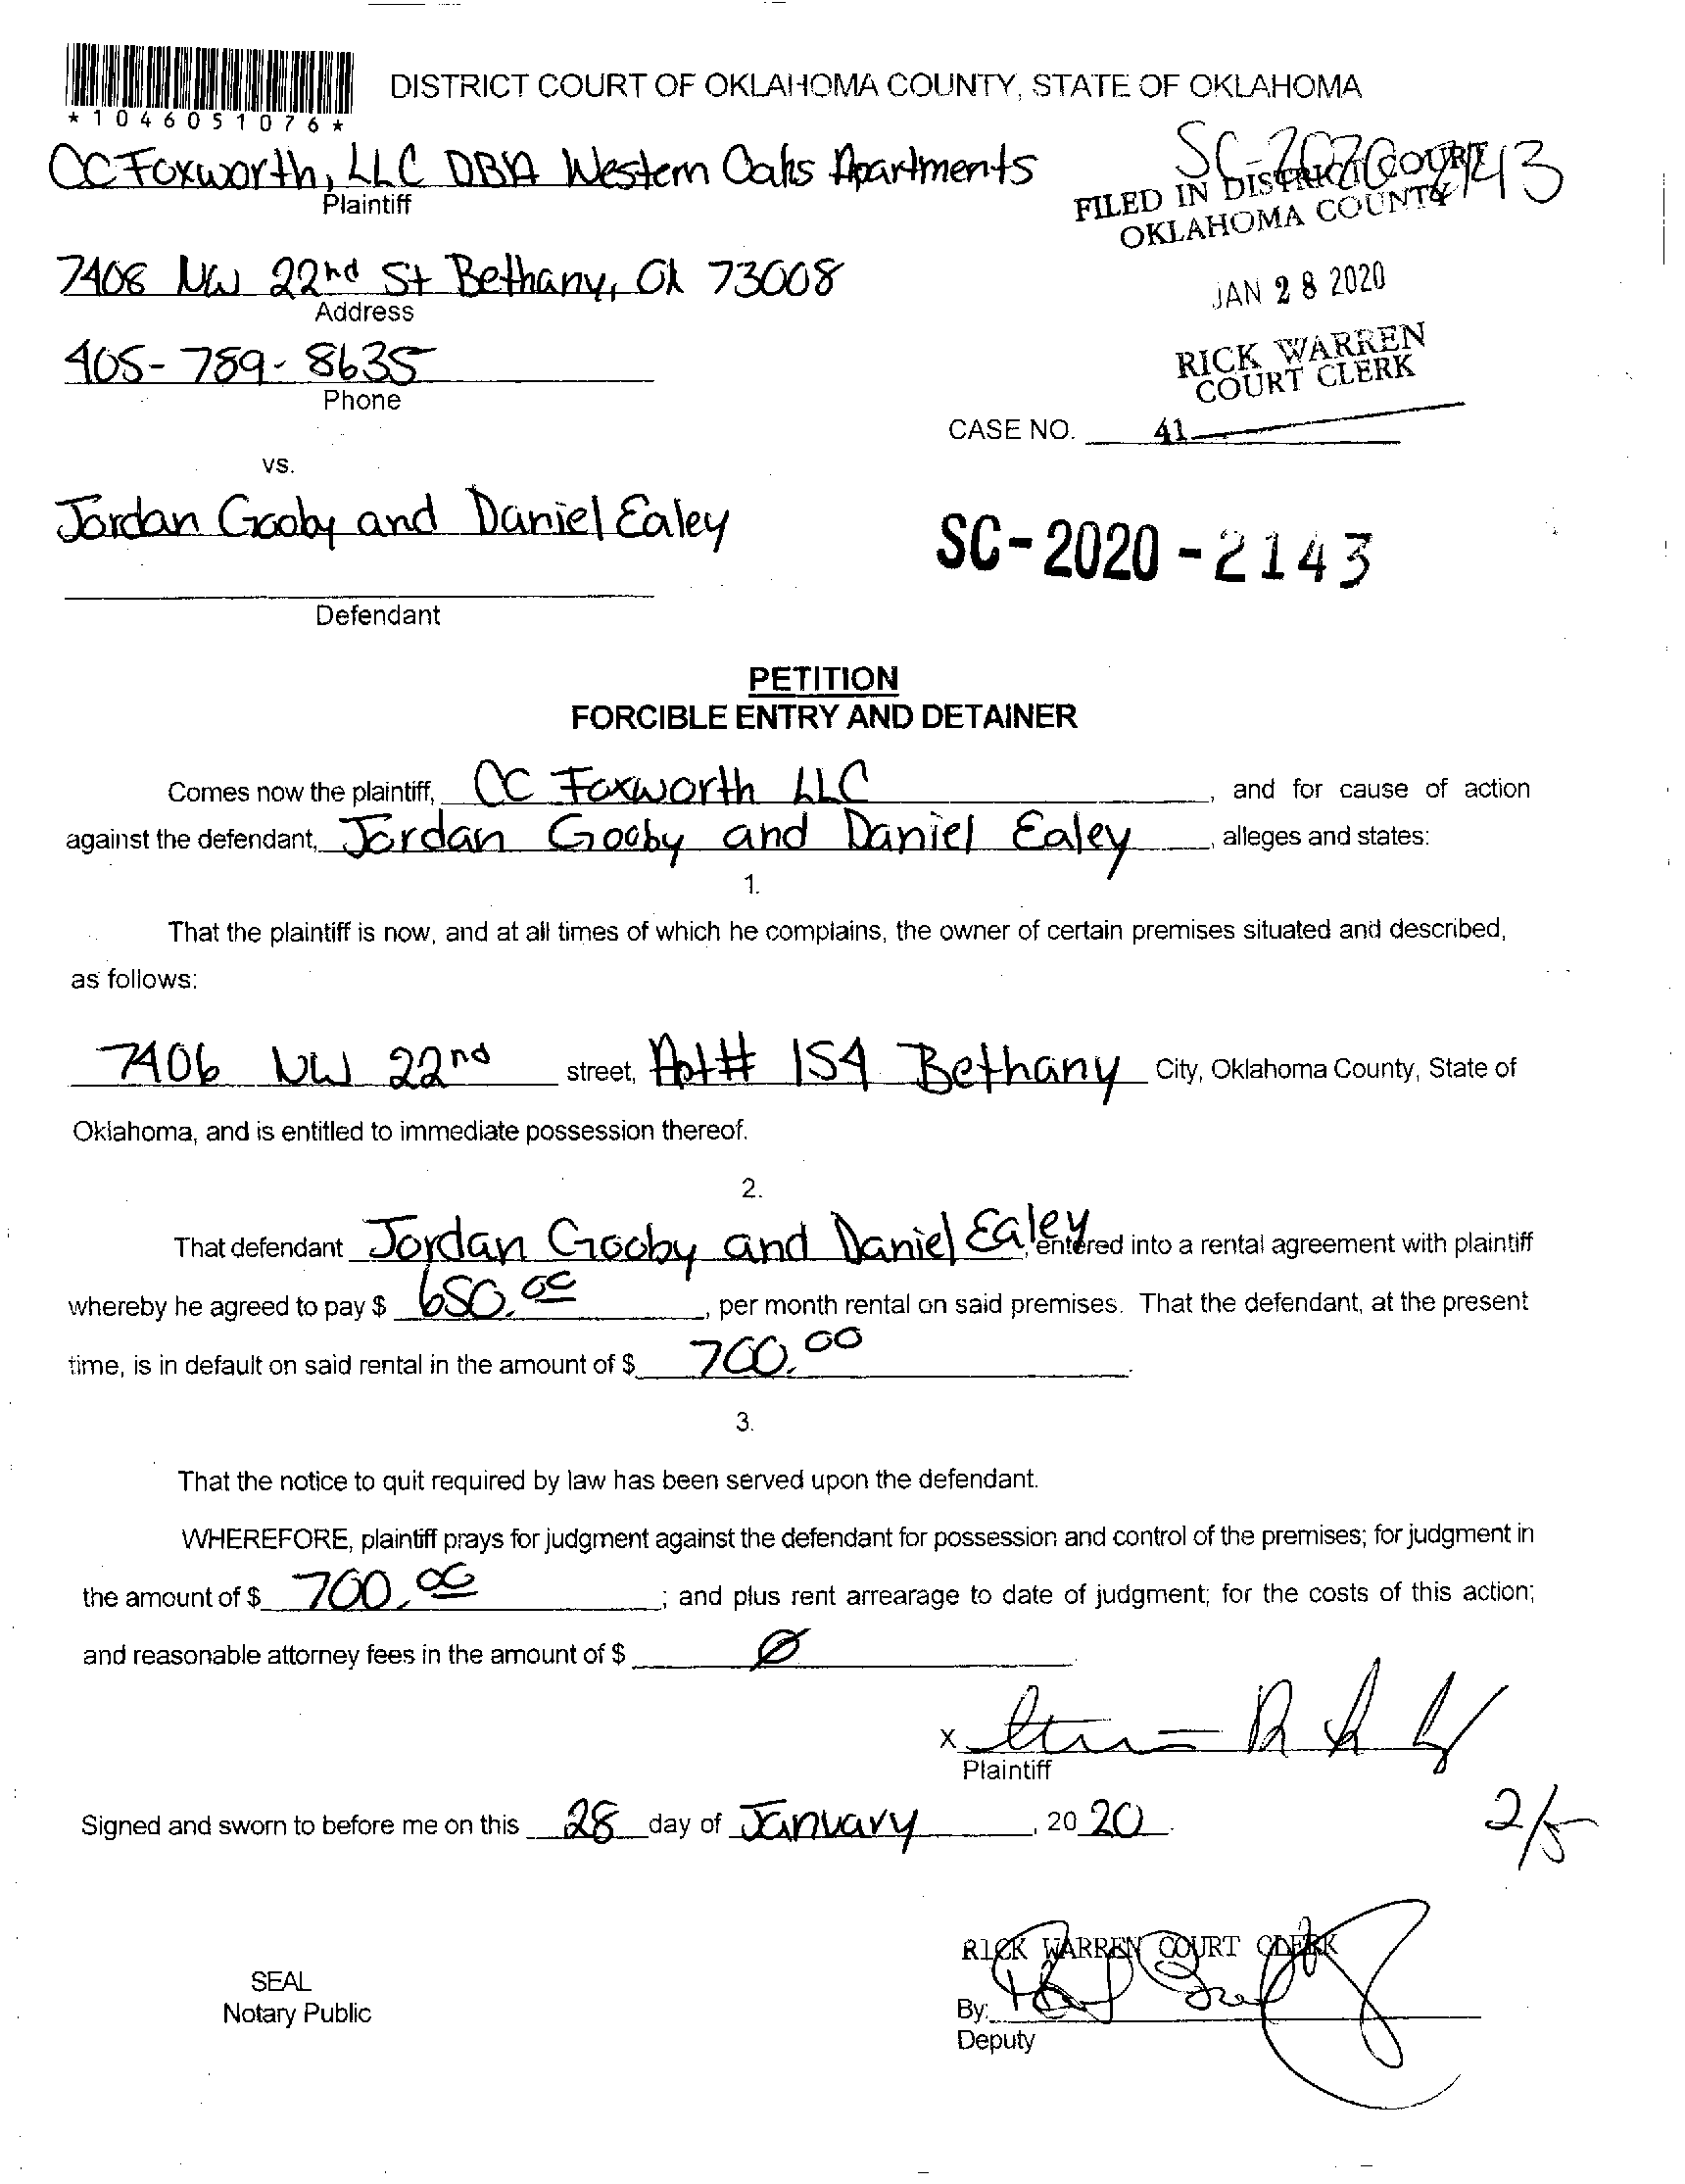 DISTRICT COURT OF OKLAHOMA COUNTY, STATE OF OKLAHOMA
*1046051076*
CC Foxworth, LLC DBA Western Oaks Apartments
Plaintiff
SC-2020-2143
FILED IN DISTRICT COURT
OKLAHOMA COUNTY
7408 NW 22nd St Bethany, Ok 73008
Address
JAN 28 2020
405-789-8635
Phone
RICK WARREN
COURT CLERK
CASE NO. 41
vs.
Jordan Gooby and Daniel Ealey
SC-2020-2143
Defendant
PETITION
FORCIBLE ENTRY AND DETAINER
Comes now the plaintiff, CC Foxworth LLC, and for cause of action
against the defendant, Jordan Gooby and Daniel Ealey, alleges and states:
1.
That the plaintiff is now, and at all times of which he complains, the owner of certain premises situated and described,
as follows:
7406 NW 22nd street, Apt# 154 Bethany City, Oklahoma County, State of
Oklahoma, and is entitled to immediate possession thereof.
2.
That defendant Jordan Gooby and Daniel Ealey, entered into a rental agreement with plaintiff
whereby he agreed to pay $ 650.00, per month rental on said premises. That the defendant, at the present
time, is in default on said rental in the amount of $ 700.00.
3.
That the notice to quit required by law has been served upon the defendant.
WHEREFORE, plaintiff prays for judgment against the defendant for possession and control of the premises; for judgment in
the amount of $ 700.00; and plus rent arrearage to date of judgment; for the costs of this action;
and reasonable attorney fees in the amount of $ Ø
x
Plaintiff
Signed and sworn to before me on this 28 day of January, 2020.
2/5
RICK WARREN COURT CLERK
SEAL
Notary Public
By:
Deputy